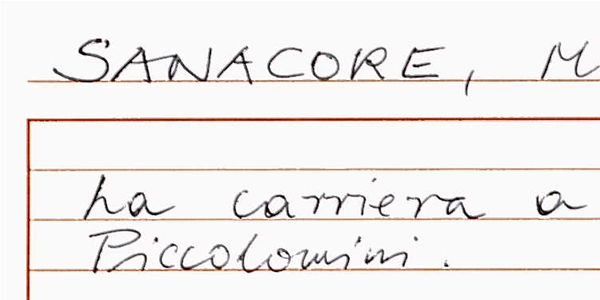 SANACORE, M
La carriera a
Piccolomini.